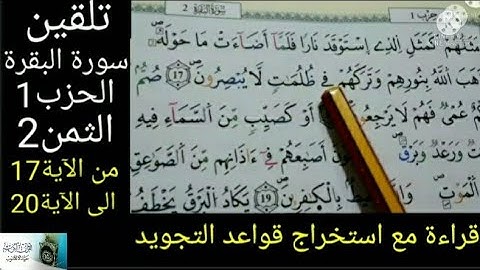 تلقين
سورة البقرة
الحزب1
الثمن2
من الآية17
الى الآية20
2
حزب 1
مَثَلُهُمْ كَمَثَلِ الذِے اِسْتَوْقَدَ نَارا فَلَمَّآ أَضَآءَتْ مَا حَوْلَهُۥ
ذَهَبَ اَللَّهُ بِنُورِهِمْ وَتَرَكَهُمْ فِے ظُلُمَٰتٖ لَّا يُبْصِرُونَ 17 صُمُّۢ
عُمْيٞ فَهُمْ لَا يَرْجِعُونَ أَوْ كَصَيِّبٖ مِّنَ اَلسَّمَآءِ فِيهِ
وَرَعْدٞ وَبَرْقٞ أَصَٰبِعَهُمْ فِےٓ ءَاذَانِهِم مِّنَ اَلصَّوَٰعِقِ
اَلْمَوْتِ بِالْكٰفِرِينَ 19 يَكَادُ اُلْبَرْقُ يَخْطَفُ
قراءة مع استخراج قواعد التجويد